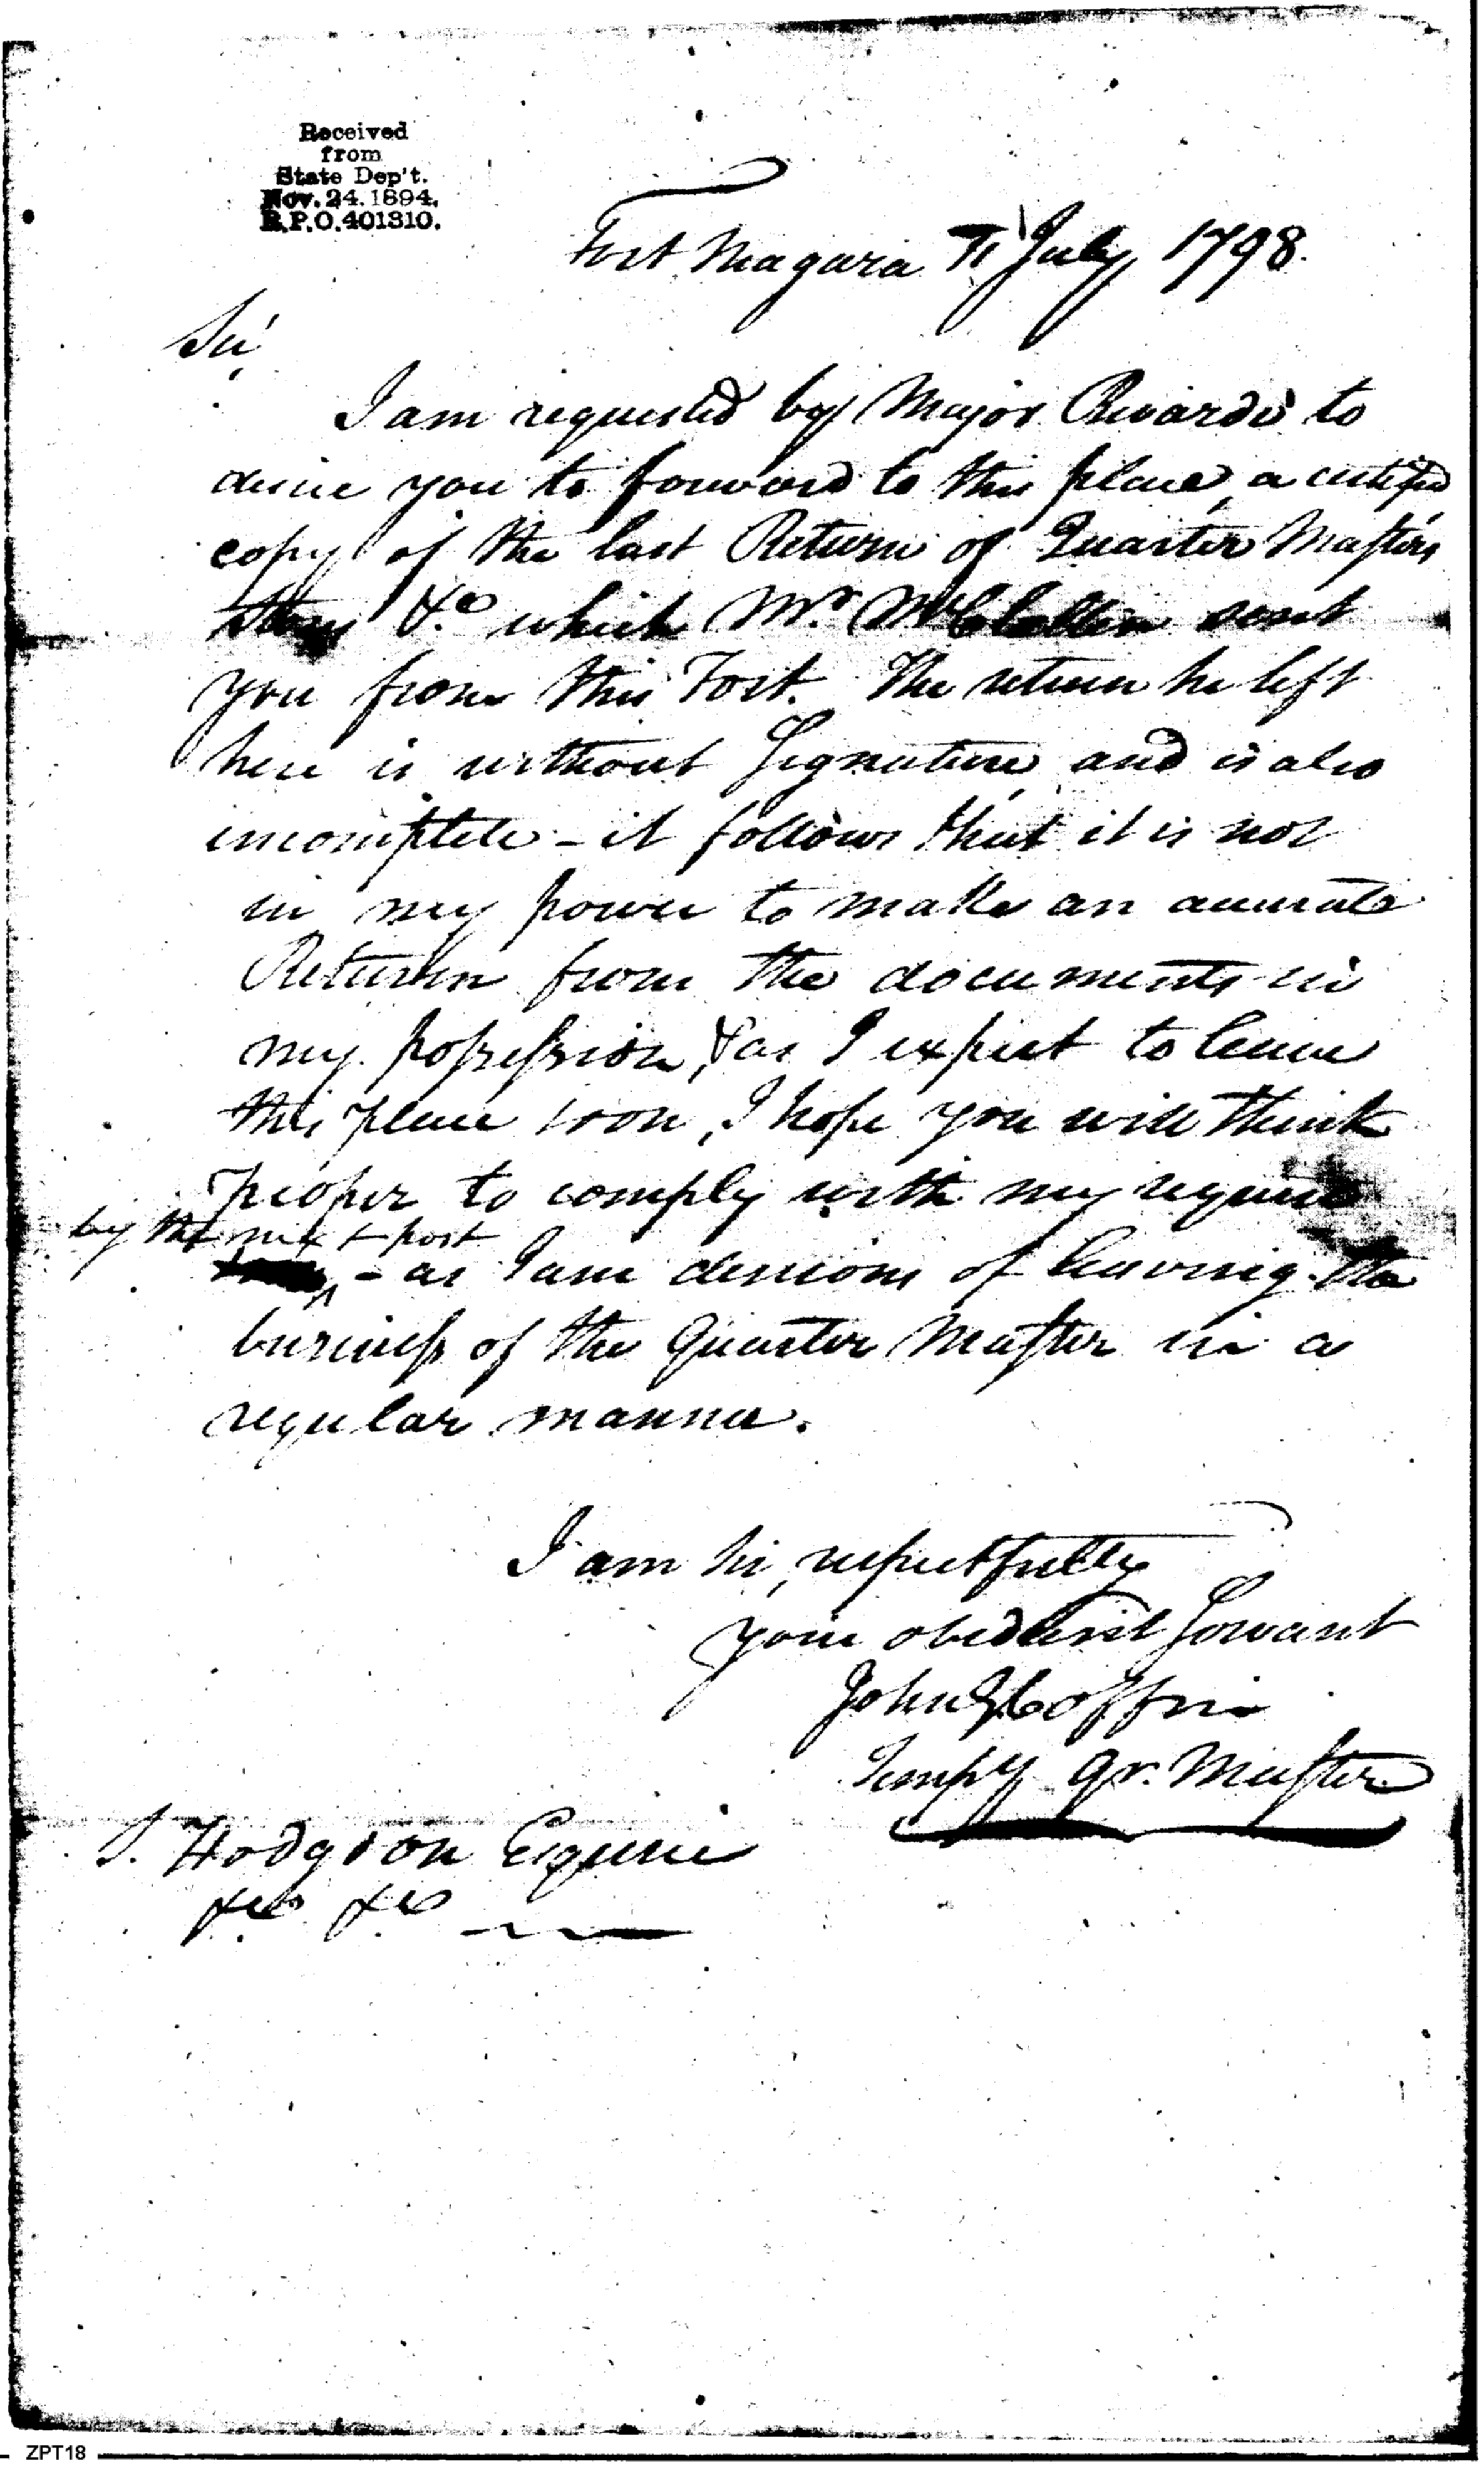 Received
from
State Dep't.
Nov. 24. 1894.
R.P.O. 401310.
Fort Niagara July 1798.
Sir,
I am requested by Major Rivardi to
desire you to forward to this place, a certified
copy of the last Return of Quarter Masters
Stores &c which Mr. McClallen sent
you from this Post. The return he left
here is without Signature, and is also
incomplete - it follows that it is not
in my power to make an accurate
Return from the documents in
my possession, & as I expect to leave
this place soon, I hope you will think
proper to comply with my request
by the next post
- as I am desirous of leaving the
business of the Quarter Master in a
regular manner.
I am Sir, respectfully
your obedient Servant
John G Coffin
Tempy Qr. Master
S. Hodgson Esquire
&c &c
ZPT18